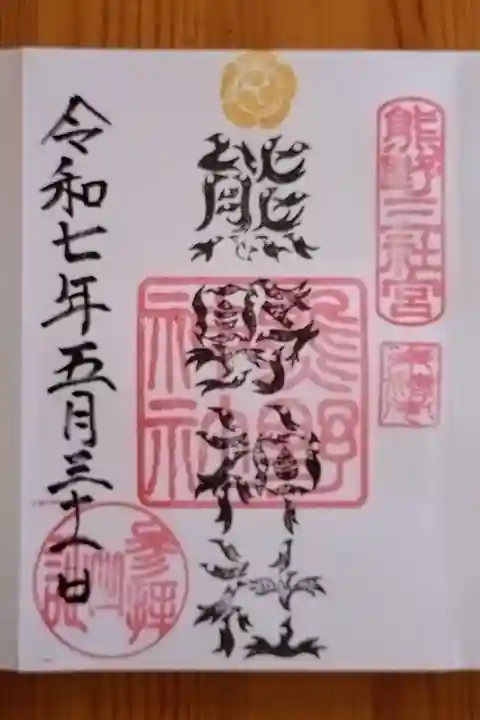 熊野三社宮
熊野神社
熊野神社
令和七年五月三十一日
参拝